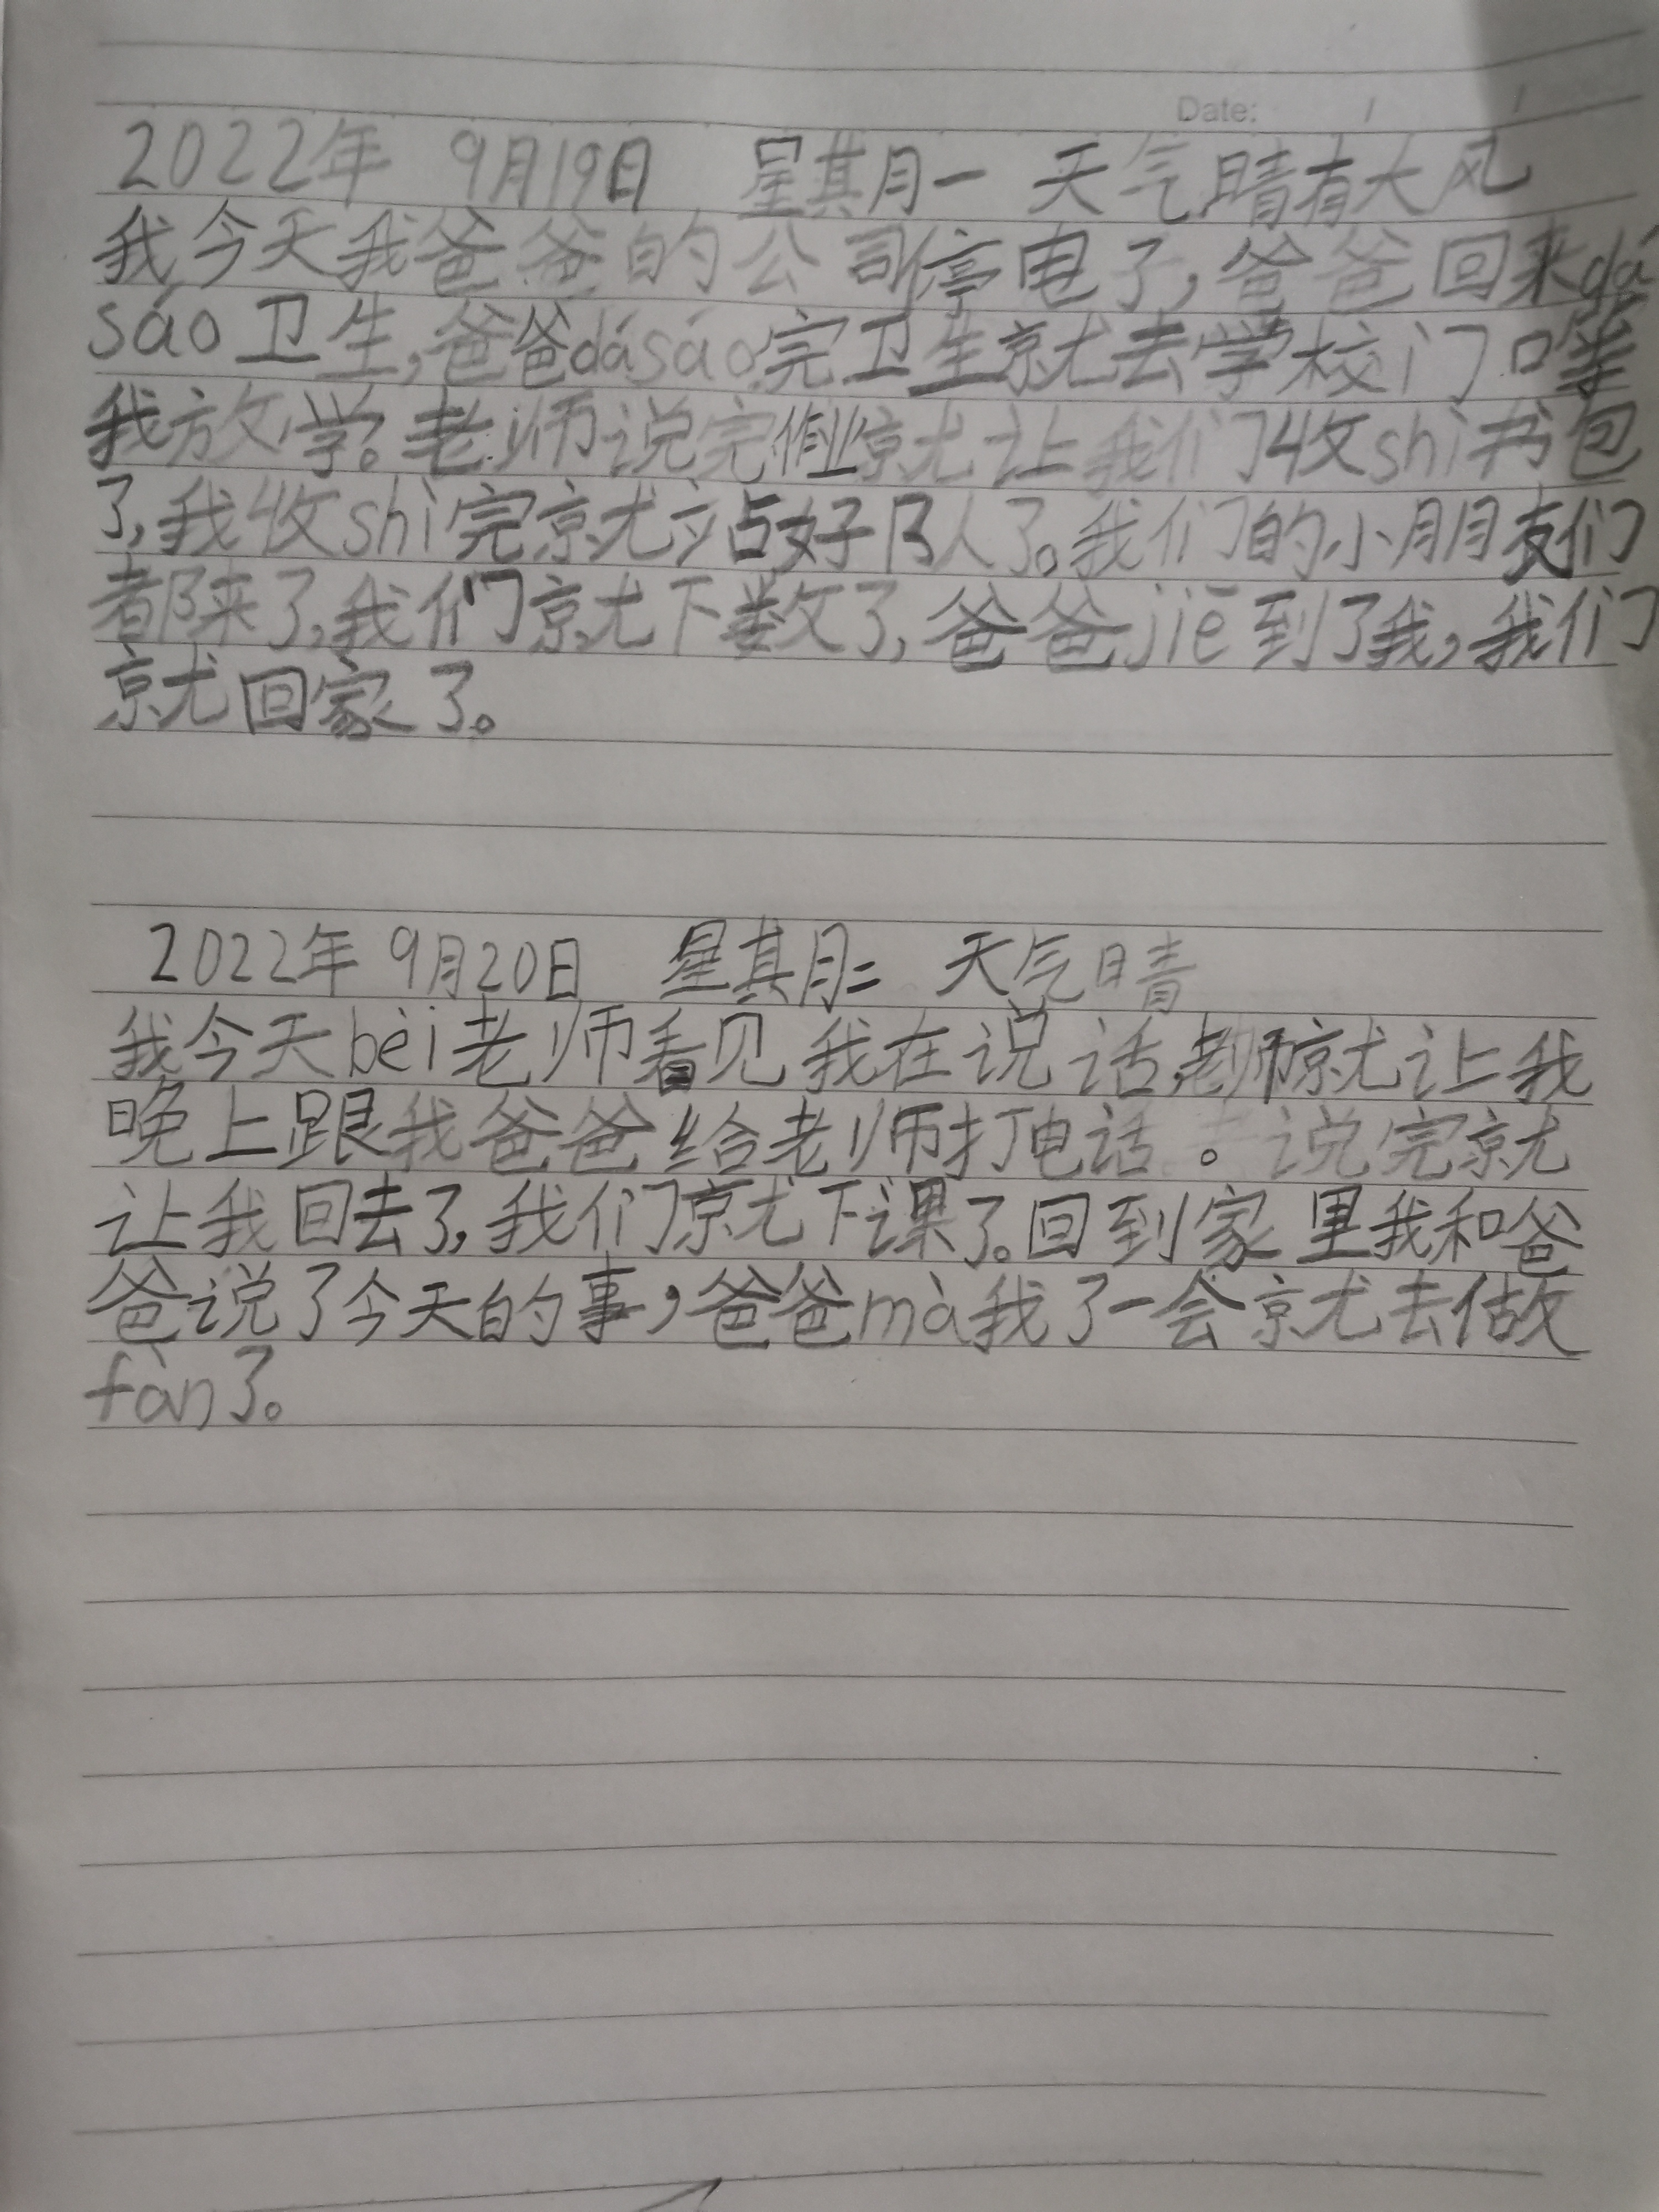 Date: / /
2022年 9月19日 星其月一 天气晴有大风
我今天我爸爸的公司停电了,爸爸回来dá
sáo卫生,爸爸dásáo完卫生就去学校门口等
我放学。老师说完作业就让我们收shì书包
了,我收shì完就站好队了。我们的小朋友们
都来了,我们就下数了,爸爸jiē到了我,我们
就回家了。
2022年 9月20日 星其月二 天气晴
我今天bèi老师看见我在说话,老师就让我
晚上跟我爸爸给老师打电话。说完就
让我回去了,我们就下课了。回到家里我和爸
爸说了今天的事,爸爸mà我了一会就去做
fàn了。